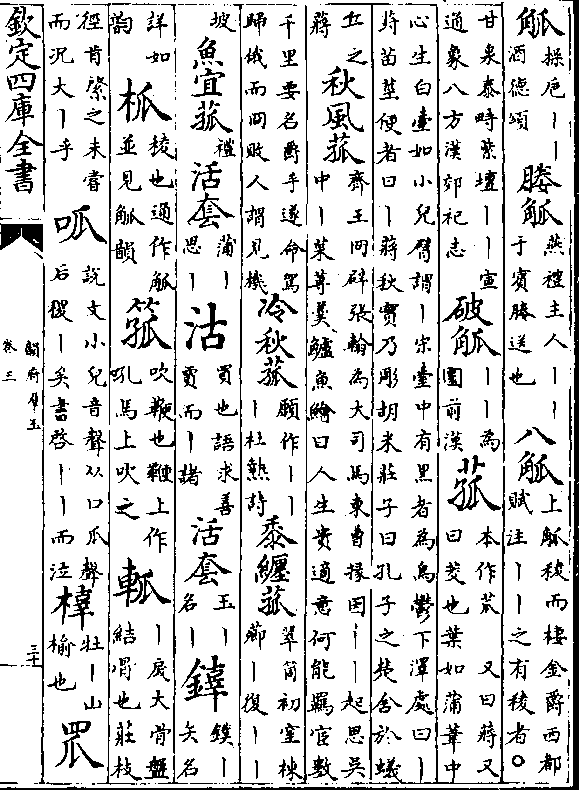 觚 操卮丨丨 酒德頌 媵觚 燕禮主人丨丨 于賓媵送也 八觚 上觚稜而棲金爵西都 賦注丨丨之有稜者○
甘泉泰畤紫壇丨丨宣 通象八方漢郊祀志 破觚 丨丨為 圜前漢 菰 本作苽 又曰蔣又 曰茭也葉如蒲葦中
心生白臺如小兒臂謂丨宋臺中有黒者為烏鬱下澤處曰丨 蒋苗莖便者曰丨蔣秋實乃彫胡米莊子曰孔子之楚舍於蟻
丘之 蔣 秋風菰 齊王冏辟張翰為大司馬東曹掾因丨丨起思吳 中丨菜蓴羮鱸魚鱠曰人生貴適意何能羈宦數
千里要名爵乎遂命駕 歸俄而冏敗人謂見機 泠秋菰 願作丨丨 丨杜熱詩 黍纏菰 翠筒初窒楝 薌丨復丨丨
坡 魚宜菰 禮 活套 蒲丨 思丨 沽 買也語求善 賈而丨諸 活套 玉丨 名丨 鏌丨 矢名
詳如 韵 柧 稜也通作觚 並見觚韻 箛 吹鞭也鞭上作 吼馬上吹之 軱 丨戾大骨盤 結骨也莊枝
徑肯綮之未嘗 而況大丨乎 呱 說文小兒音聲从口瓜聲 后稷丨矣書啓丨丨而泣 牡丨山 榆也 罛
欽定四庫全書
韻府羣玉
卷三
三十